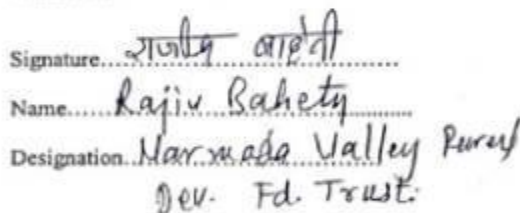 Signature... राजीव बाहेती
Name... Rajiv Bahety
Designation. Narmada Valley Rural
Dev. Fd. Trust.